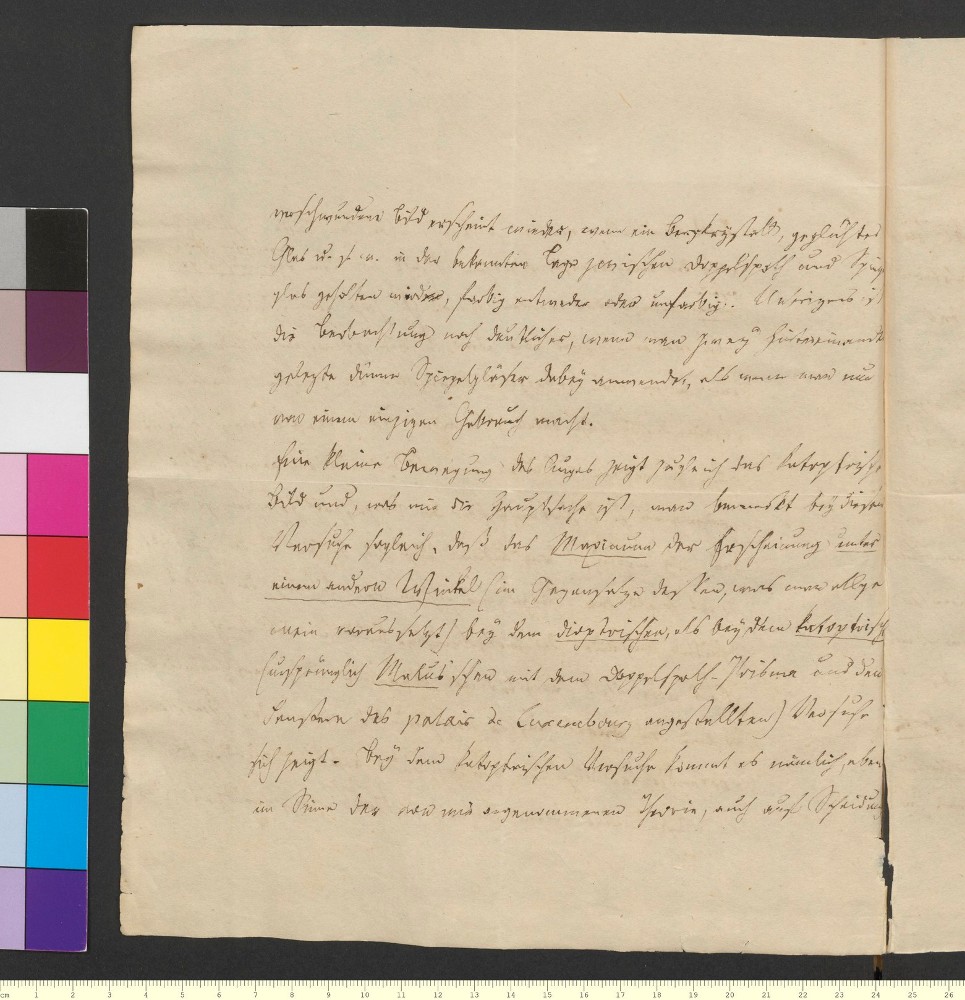 verschwundene Bild erscheint wieder, wenn ein Bergkrystall, geglühtes
Glas u. s. w. in der bekannten Lage zwischen Doppelspath und Spieg
glas gehalten wird, farbig entweder oder unfarbig. Uebrigens ist
die Beobachtung noch deutlicher, wenn man zwey hintereinander
gelegte dünne Spiegelgläser dabey anwendet, als wenn man nur
von einem einzigen Gebrauch macht.
Eine kleine Bewegung des Auges zeigt zugleich das katoptrische
Bild und, was mir die Hauptsache ist, man bemerkt bey diesem
Versuche sogleich, daß das Maximum der Erscheinung unter
einem andern Winkel (im Gegensatze dessen, was man allge
mein voraussetzt) bey dem dioptrischen, als bey dem katoptrisch
(ursprünglich Malus'schen mit dem Doppelspath-Prisma und den
Fenstern des palais de Luxembourg angestellten) Versuche
sich zeigt. Bey dem katoptrischen Versuche kommt es nämlich, eben
im Sinne der von mir angenommenen Theorie, auch auf Scheidun